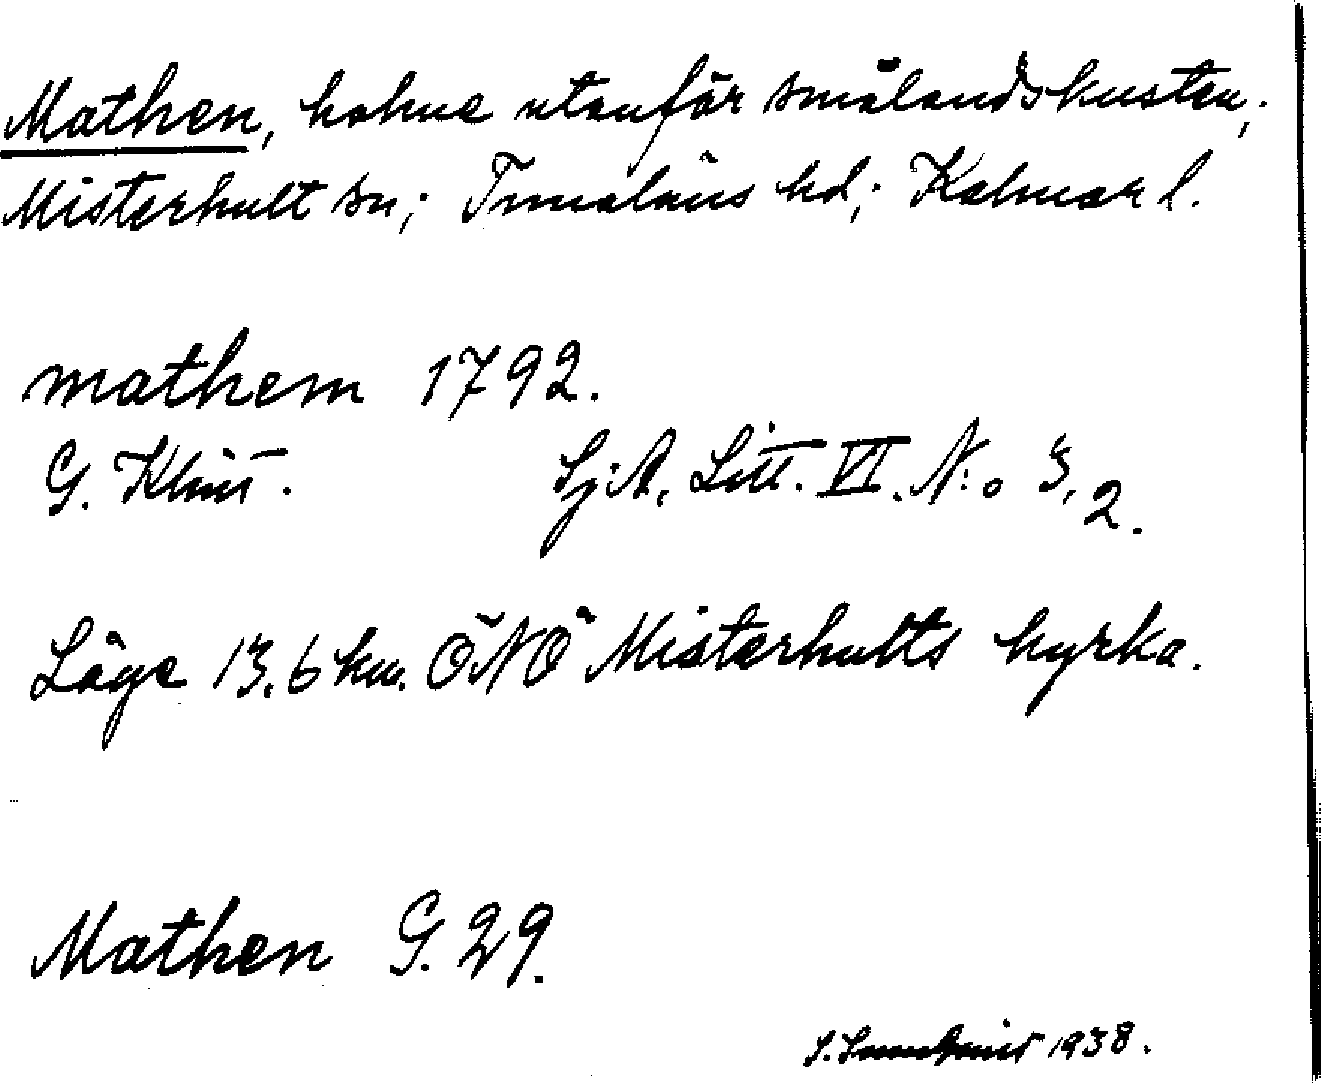 Mathen, holme utanför smålandskusten;
Misterhult sn; Tunaläns hd; Kalmar l.
mathem 1792.
G. Klint. Sj.A. Litt. VI. N:o 3, 2.
Läge 13,6 km. ÖNÖ Misterhults kyrka.
Mathen G. 29.
1938.